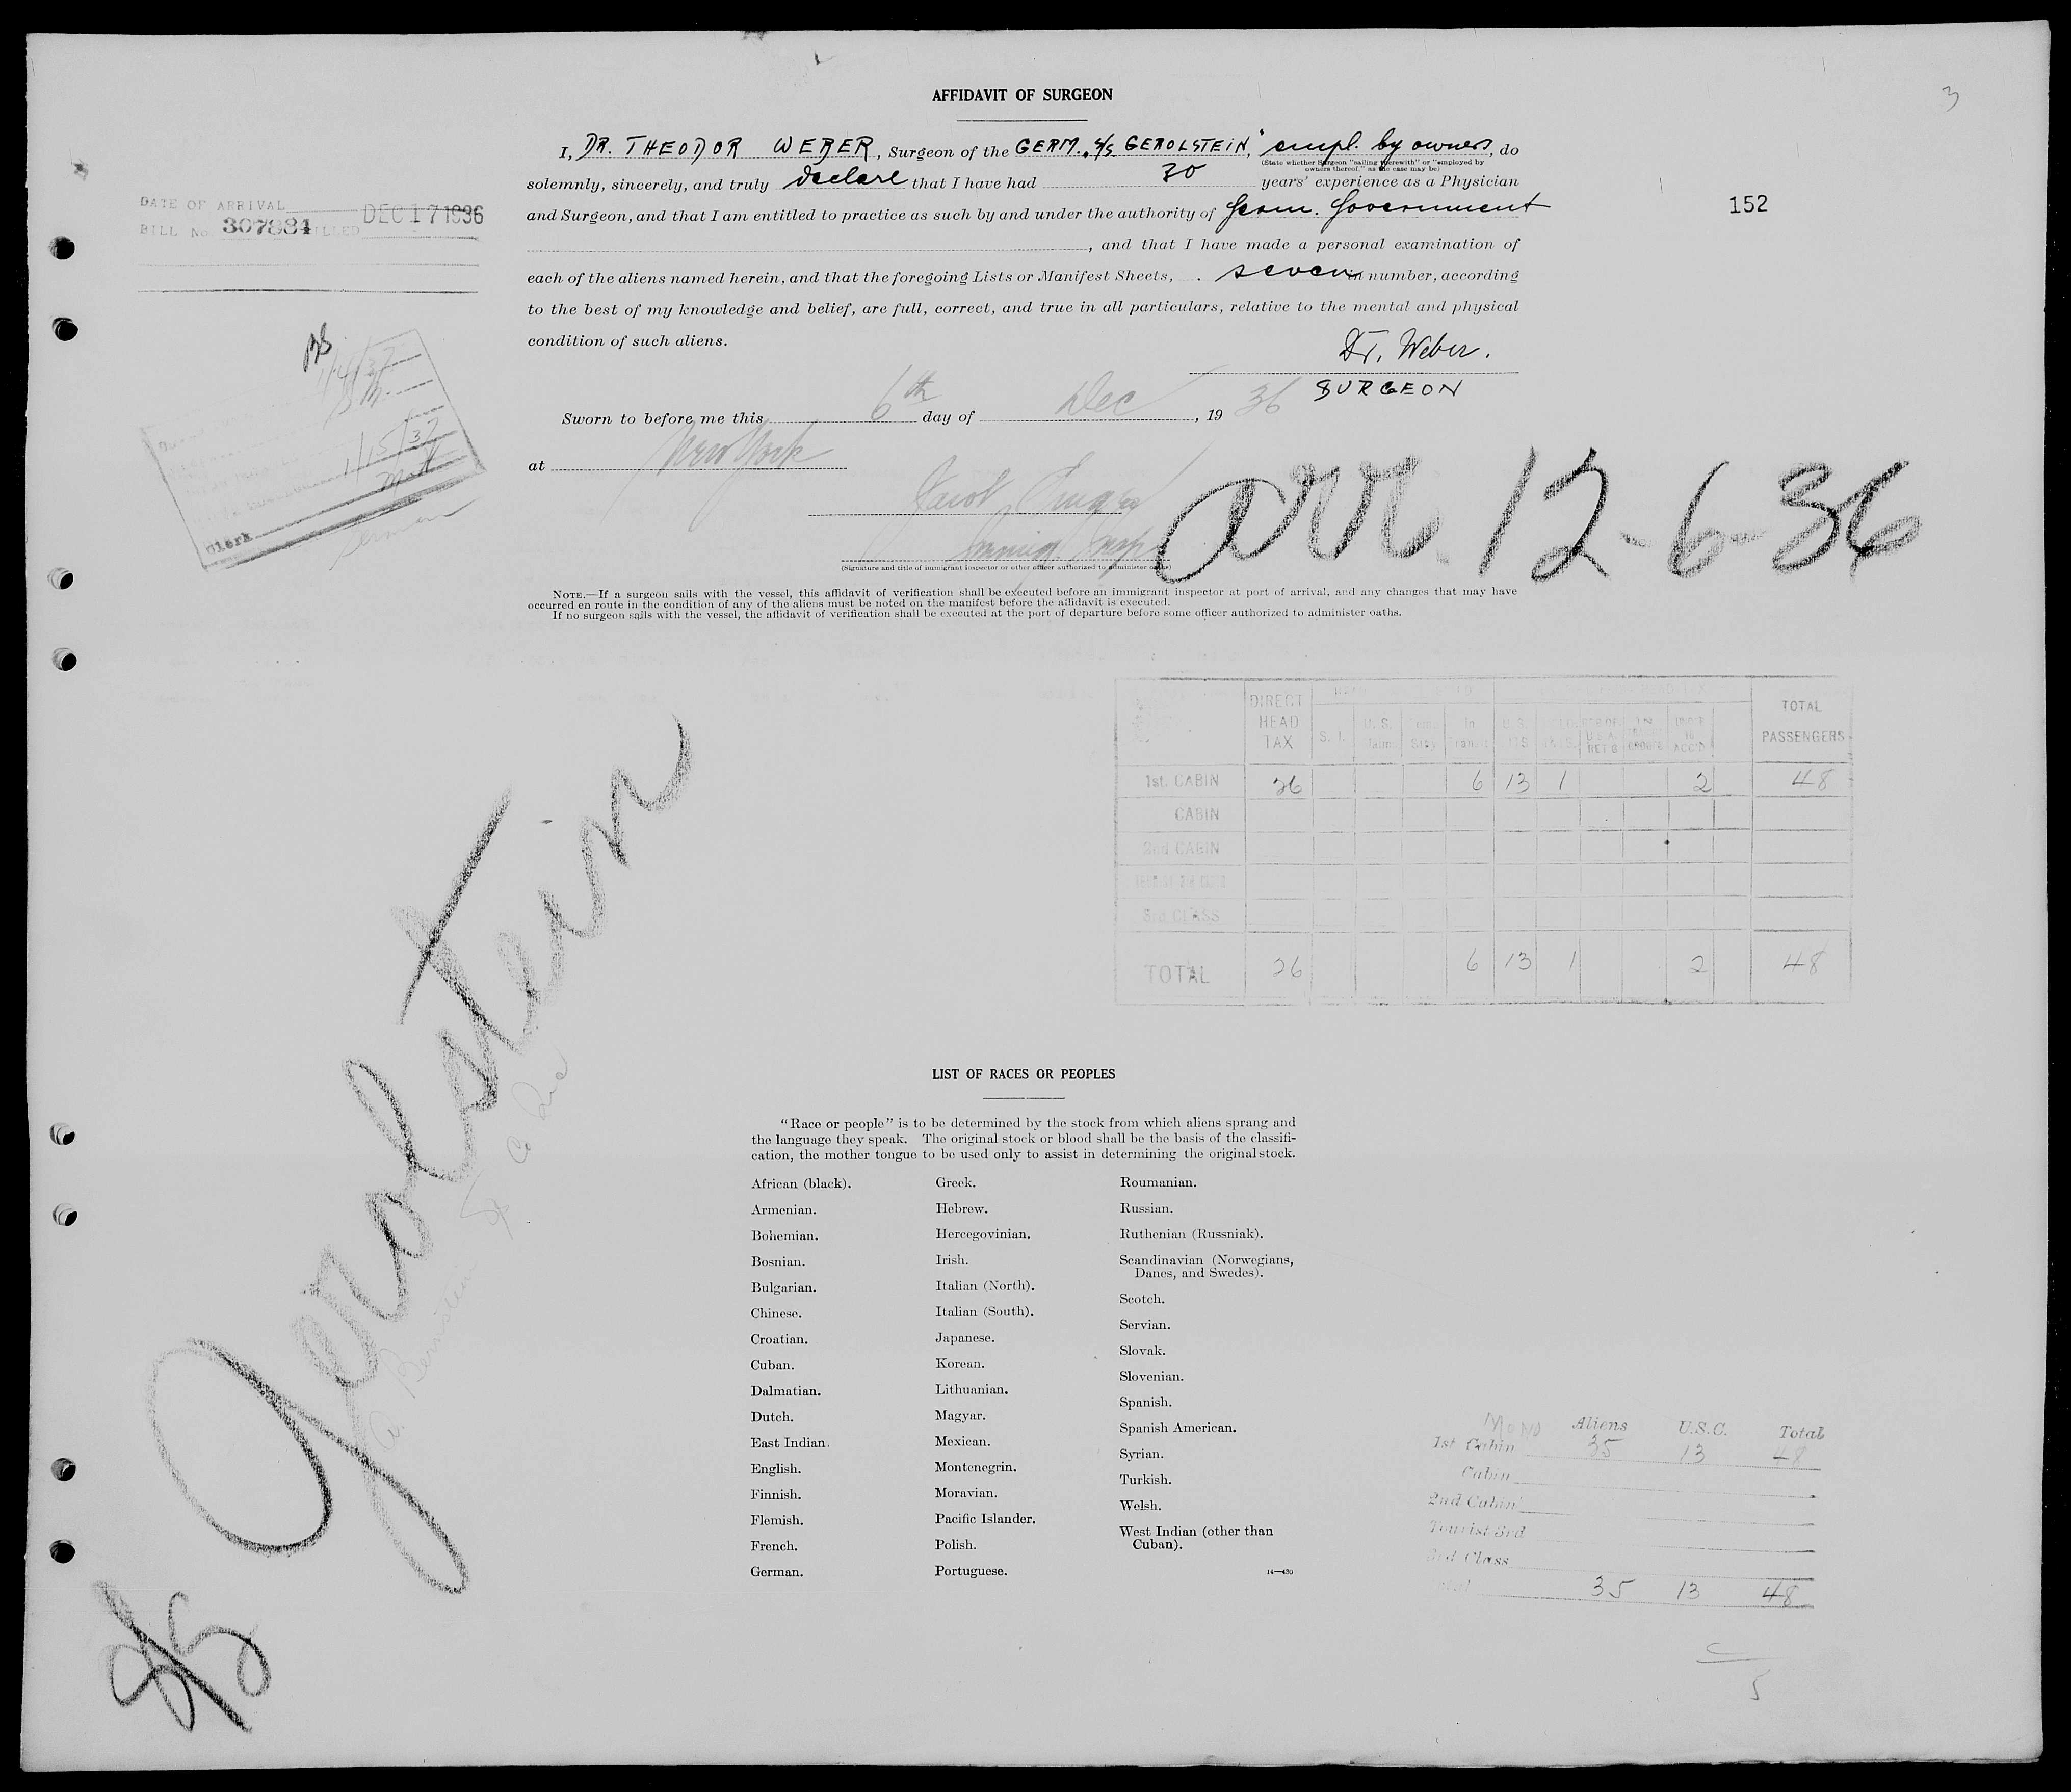 3
AFFIDAVIT OF SURGEON
I, DR. THEODOR WEBER, Surgeon of the GERM. S/S GEROLSTEIN," empl. by owners, do
(State whether Surgeon "sailing therewith" or "employed by
owners thereof," as the case may be)
solemnly, sincerely, and truly declare that I have had 30 years' experience as a Physician
and Surgeon, and that I am entitled to practice as such by and under the authority of Germ. Government
, and that I have made a personal examination of
each of the aliens named herein, and that the foregoing Lists or Manifest Sheets, seven in number, according
to the best of my knowledge and belief, are full, correct, and true in all particulars, relative to the mental and physical
condition of such aliens.
Dr. Weber.
SURGEON
Sworn to before me this 6th day of Dec, 1936
at New York
(Signature and title of immigrant inspector or other officer authorized to administer oaths)
arr. 12-6-36
152
DATE OF ARRIVAL
BILL No. 307884 BILLED DEC 17 1936
1/4/37
1/15/37
Clerk
NOTE.—If a surgeon sails with the vessel, this affidavit of verification shall be executed before an immigrant inspector at port of arrival, and any changes that may have
occurred en route in the condition of any of the aliens must be noted on the manifest before the affidavit is executed.
If no surgeon sails with the vessel, the affidavit of verification shall be executed at the port of departure before some officer authorized to administer oaths.
DIRECT HEAD TAX S. I. U. S. In TOTAL PASSENGERS
1st. CABIN 26 6 13 1 2 48
CABIN
2nd CABIN
3rd CLASS
TOTAL 26 6 13 1 2 48
S/S Gerolstein
LIST OF RACES OR PEOPLES
"Race or people" is to be determined by the stock from which aliens sprang and
the language they speak. The original stock or blood shall be the basis of the classifi-
cation, the mother tongue to be used only to assist in determining the original stock.
African (black).
Armenian.
Bohemian.
Bosnian.
Bulgarian.
Chinese.
Croatian.
Cuban.
Dalmatian.
Dutch.
East Indian.
English.
Finnish.
Flemish.
French.
German.
Greek.
Hebrew.
Hercegovinian.
Irish.
Italian (North).
Italian (South).
Japanese.
Korean.
Lithuanian.
Magyar.
Mexican.
Montenegrin.
Moravian.
Pacific Islander.
Polish.
Portuguese.
Roumanian.
Russian.
Ruthenian (Russniak).
Scandinavian (Norwegians,
Danes, and Swedes).
Scotch.
Servian.
Slovak.
Slovenian.
Spanish.
Spanish American.
Syrian.
Turkish.
Welsh.
West Indian (other than
Cuban).
14—430
Aliens U.S.C. Total
1st Cabin 35 13 48
Cabin
2nd Cabin
Tourist 3rd
3rd Class
35 13 48
5